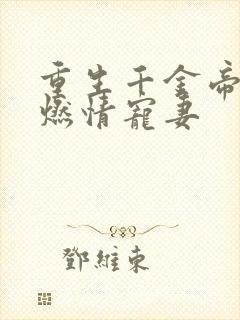 重生千金帝
燃情寵妻
鄧維東